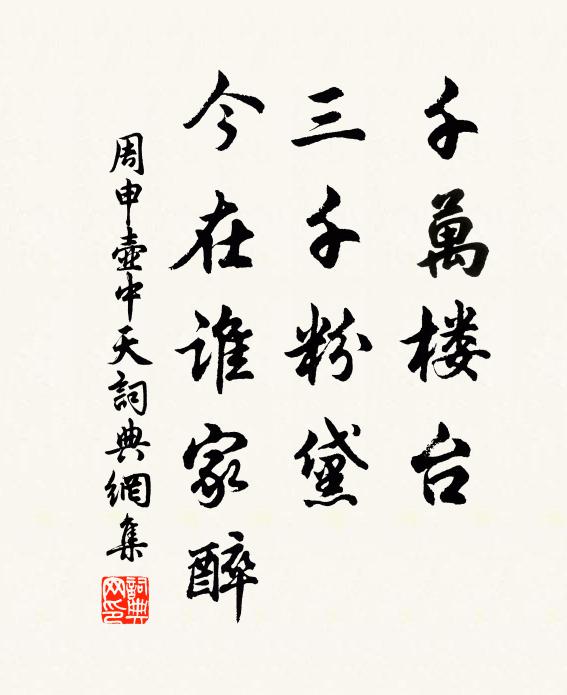 千萬楼台
三千粉黛
今在谁家醉
周申壺中天詞典網集
詞典网印